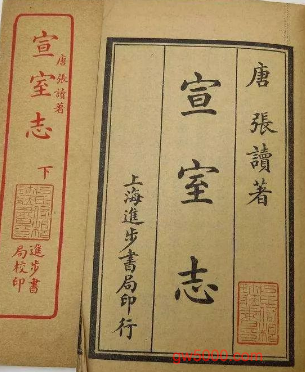 唐張讀著
宣室志
上海進步書局印行
唐張讀著
宣室志
下
進步書局校印
gw8000.com